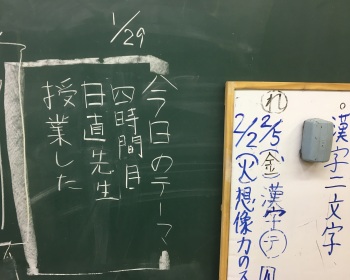 1/29
今日のテーマ
四時間目
日直先生
授業した
。漢字二文字
れ 2/5(金)漢字テ
2/2(火)想像力のス